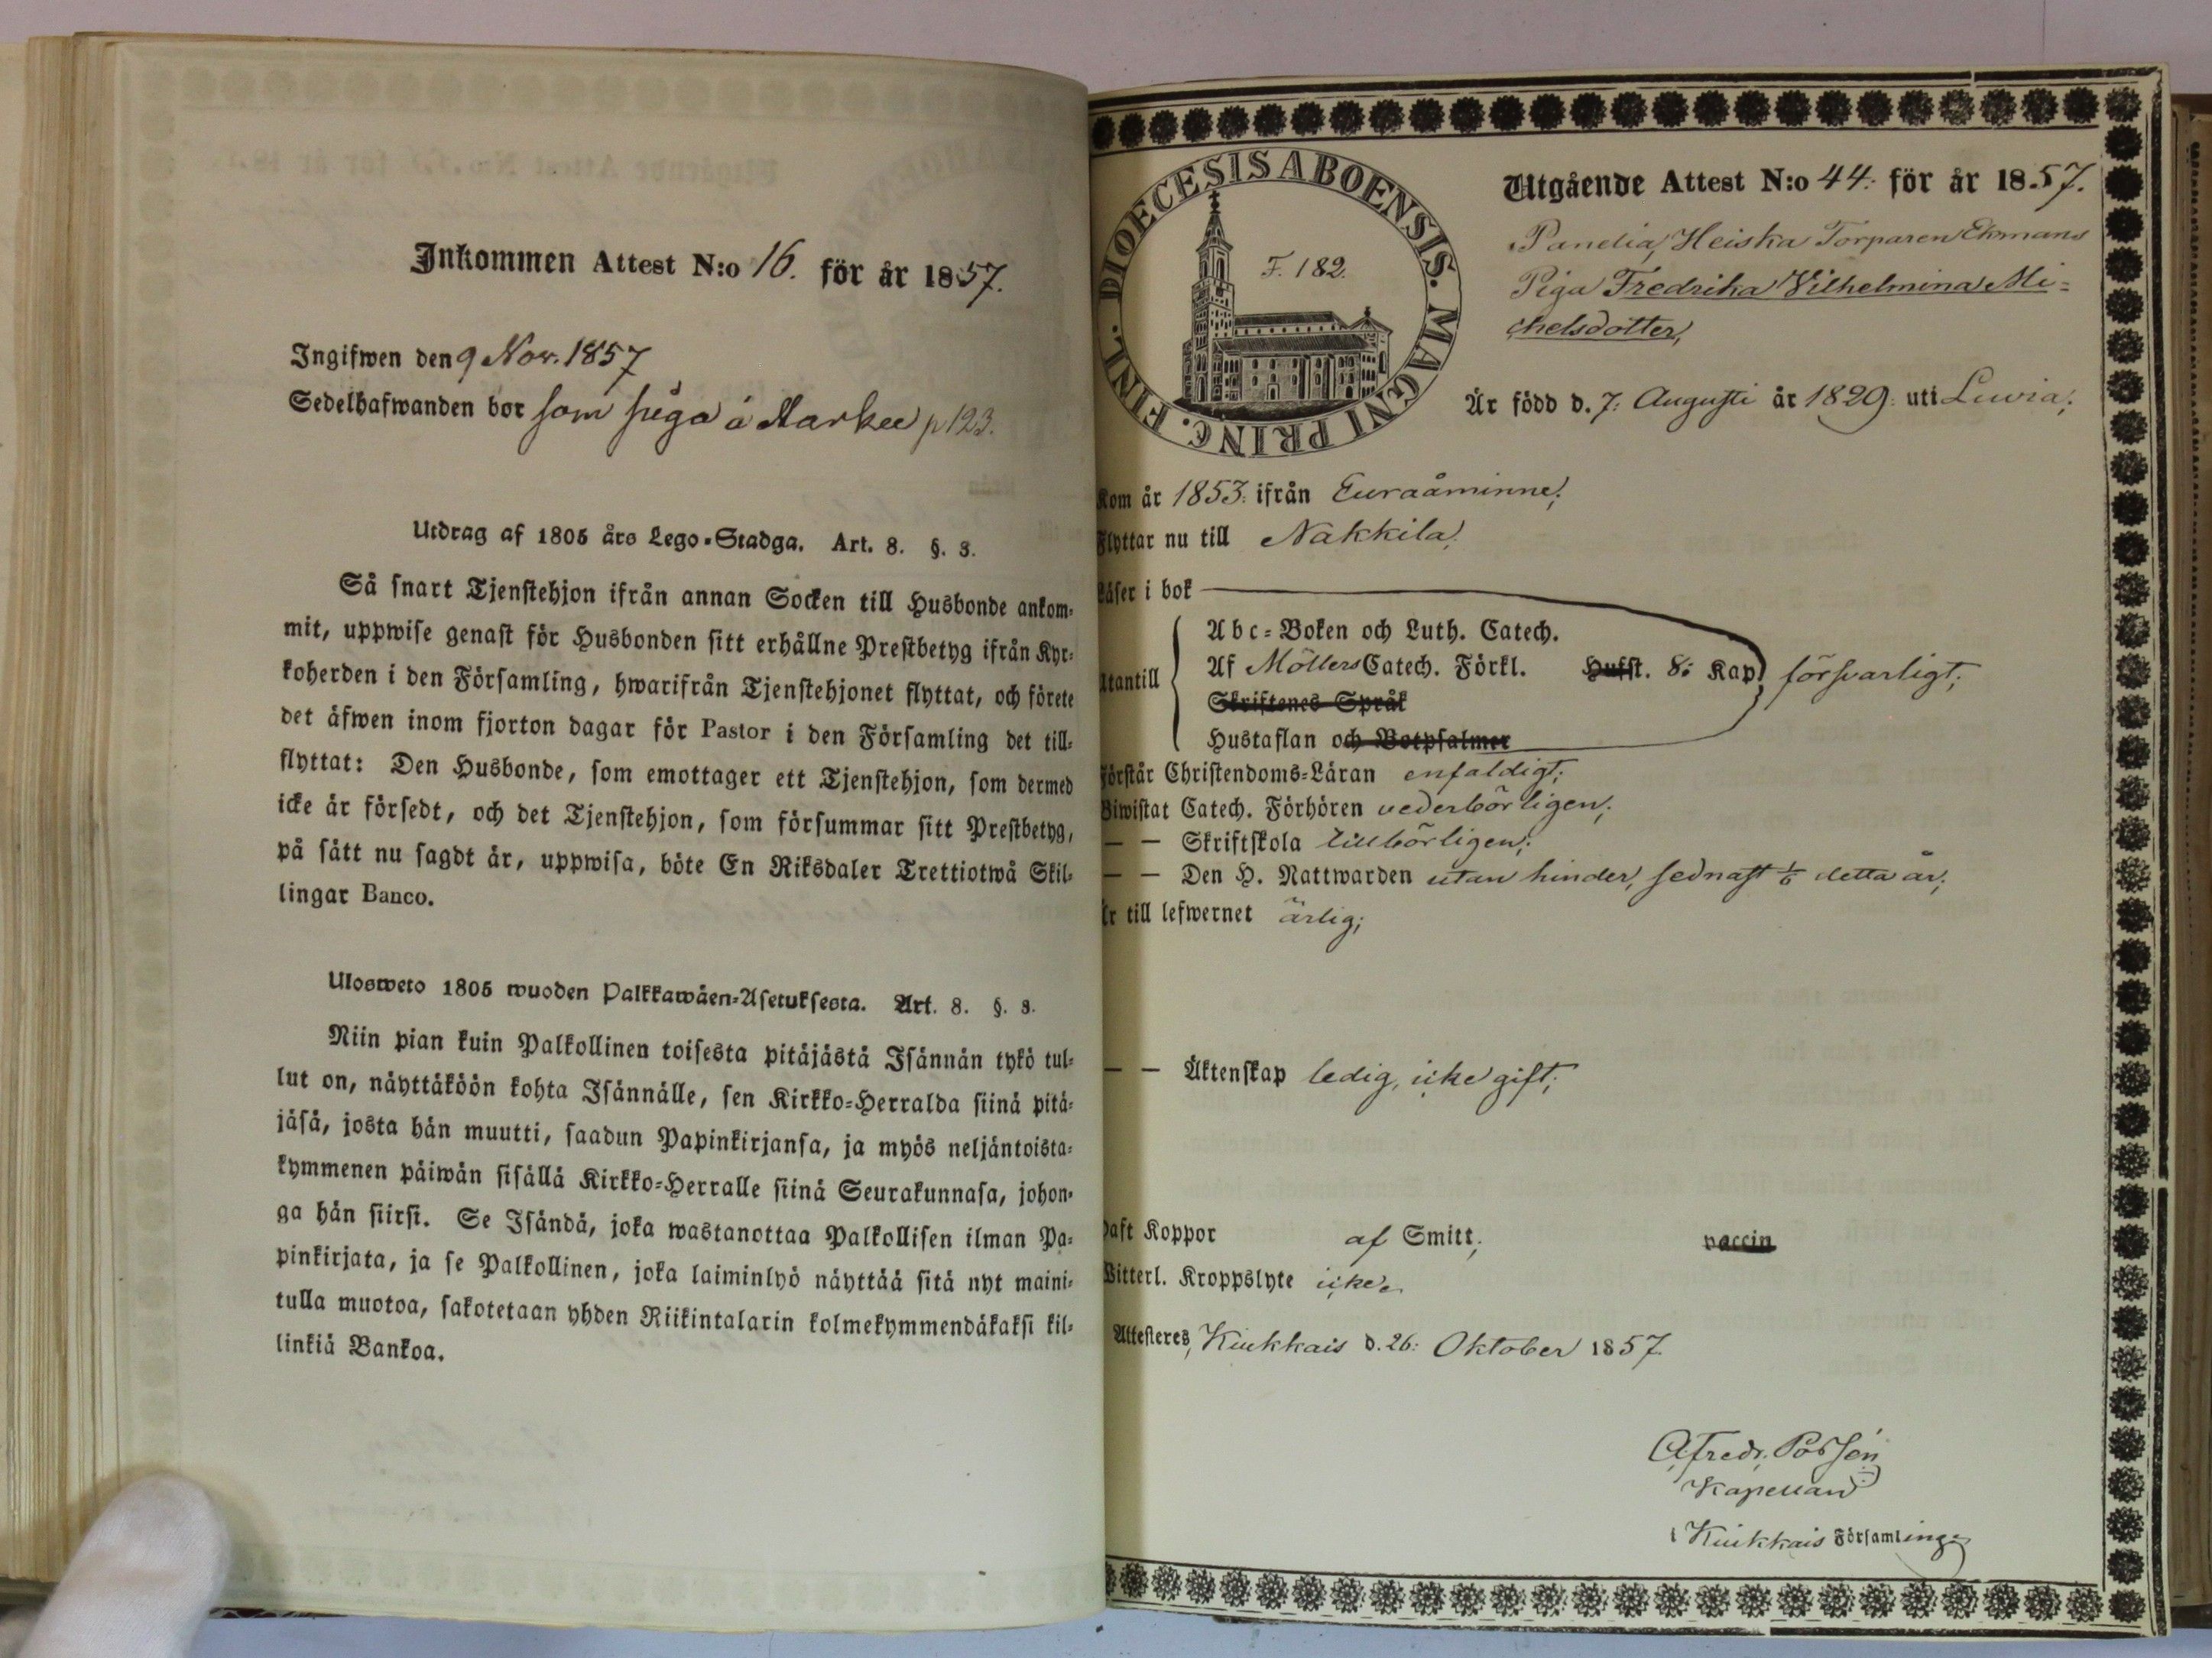 Inkommen Attest N:o 16. för år 1857.
Ingifwen den 9 Nov. 1857
Sedelhafwanden bor som piga å p 123.
Utdrag af 1805 års Lego-Stadga. Art. 8. §. 3.
Så snart Tjenstehjon ifrån annan Socken till Husbonde ankom-
mit, uppwise genast för Husbonden sitt erhållne Prestbetyg ifrån Kyr-
koherden i den Församling, hwarifrån Tjenstehjonet flyttat, och förete
det äfwen inom fjorton dagar för Pastor i den Församling det till-
flyttat: Den Husbonde, som emottager ett Tjenstehjon, som dermed
icke är försedt, och det Tjenstehjon, som försummar sitt Prestbetyg,
på sätt nu sagdt är, uppwisa, böte En Riksdaler Trettiotwå Skil-
lingar Banco.
Ulosweto 1805 wuoden Palkkawäen-Asetuksesta. Art. 8. §. 3.
Niin pian kuin Palkollinen toisesta pitäjästä Isännän tykö tul-
lut on, näyttäköön kohta Isännälle, sen Kirkko-Herralda siinä pitä-
jäsä, josta hän muutti, saadun Papinkirjansa, ja myös neljäntoista-
kymmenen päiwän sisällä Kirkko-Herralle siinä Seurakunnasa, johon-
ga hän siirsi. Se Isändä, joka wastanottaa Palkollisen ilman Pa-
pinkirjata, ja se Palkollinen, joka laiminlyö näyttää sitä nyt maini-
tulla muotoa, sakotetaan yhden Riikintalarin kolmekymmendäkaksi kil-
linkiä Bankoa.
DIOECESIS ABOENSIS. MAGNI PRINC. FINL.
F. 182.
Utgående Attest N:o 44. för år 1857.
Panelia, Heiska Torparen Ekmans
Piga Fredrika Vilhelmina Mi-
chelsdotter,
Är född d. 7: Augusti år 1829: uti Luvia;
Kom år 1853: ifrån Euraåminne;
Flyttar nu till Nakkila;
Läser i bok
Utantill
Abc-Boken och Luth. Catech.
Af Möllers Catech. Förkl. Hufst. 8: Kap försvarligt;
Skriftenes Språk
Hustaflan och Botpsalmer
Förstår Christendoms-Läran enfaldigt;
Biwistat Catech. Förhören vederbörligen;
— — Skriftskola tillbörligen;
— — Den H. Nattwarden utan hinder, sednast 1/6 detta år;
Är till lefwernet ärlig;
— — Äktenskap ledig, icke gift;
Haft Koppor af Smitt; vaccin
Witterl. Kroppslyte icke.
Attesteres, Kiukkais d. 26: Oktober 1857.
A. Fredr. Porsén
Kapellan
i Kiukkais Församling